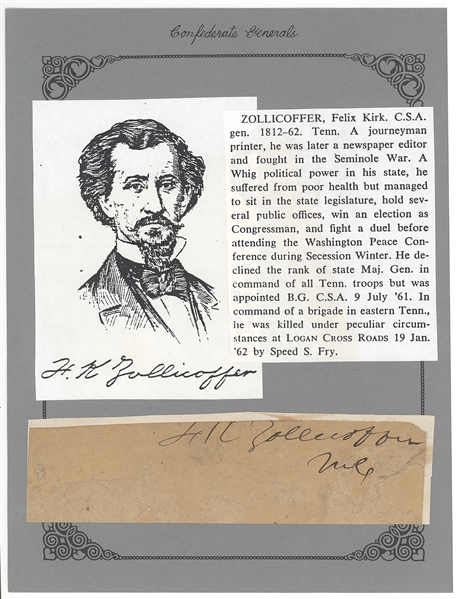 Confederate Generals
ZOLLICOFFER, Felix Kirk. C.S.A.
gen. 1812–62. Tenn. A journeyman
printer, he was later a newspaper editor
and fought in the Seminole War. A
Whig political power in his state, he
suffered from poor health but managed
to sit in the state legislature, hold sev-
eral public offices, win an election as
Congressman, and fight a duel before
attending the Washington Peace Con-
ference during Secession Winter. He de-
clined the rank of state Maj. Gen. in
command of all Tenn. troops but was
appointed B.G. C.S.A. 9 July '61. In
command of a brigade in eastern Tenn.,
he was killed under peculiar circum-
stances at LOGAN CROSS ROADS 19 Jan.
'62 by Speed S. Fry.
F. K Zollicoffer
F K Zollicoffer